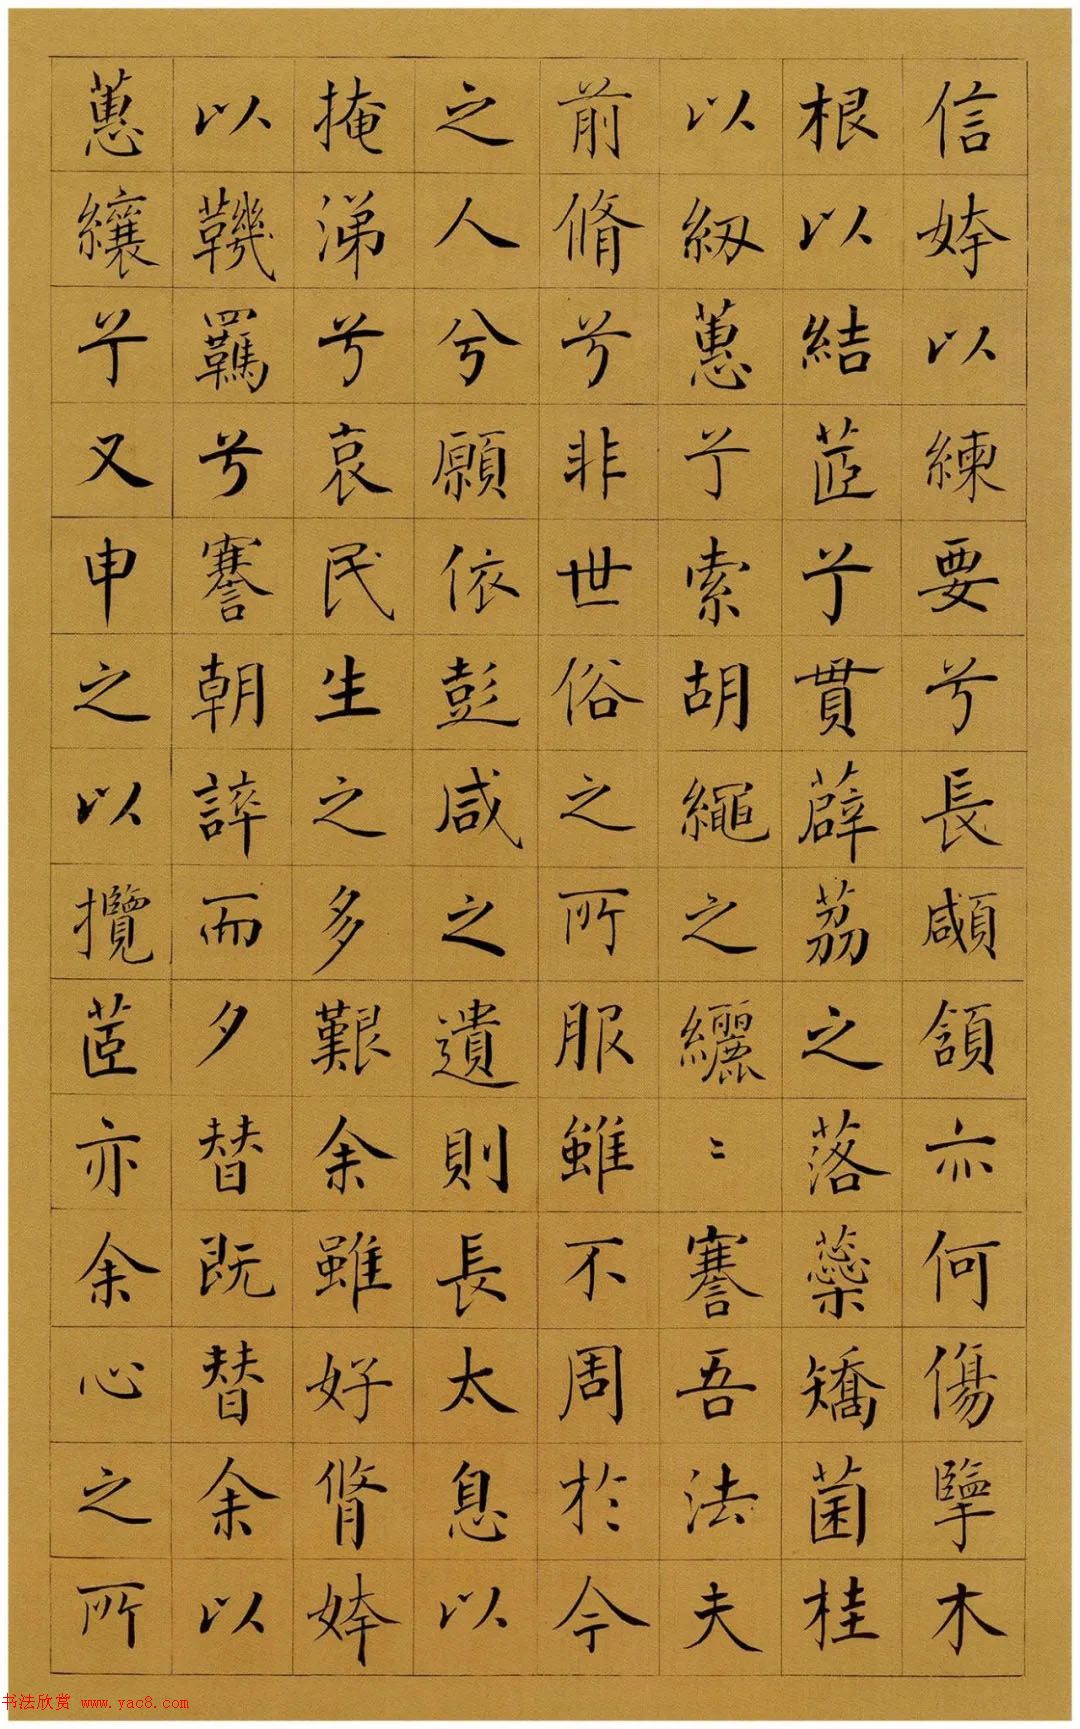 信姱以練要兮長顑頷亦何傷擥木
根以結茝兮貫薜荔之落蘂矯菌桂
以紉蕙兮索胡繩之纚〻謇吾法夫
前脩兮非世俗之所服雖不周於今
之人兮願依彭咸之遺則長太息以
掩涕兮哀民生之多艱余雖好脩姱
以鞿羈兮謇朝誶而夕替既替余以
蕙纕兮又申之以攬茝亦余心之所
书法欣赏 www.yac8.com